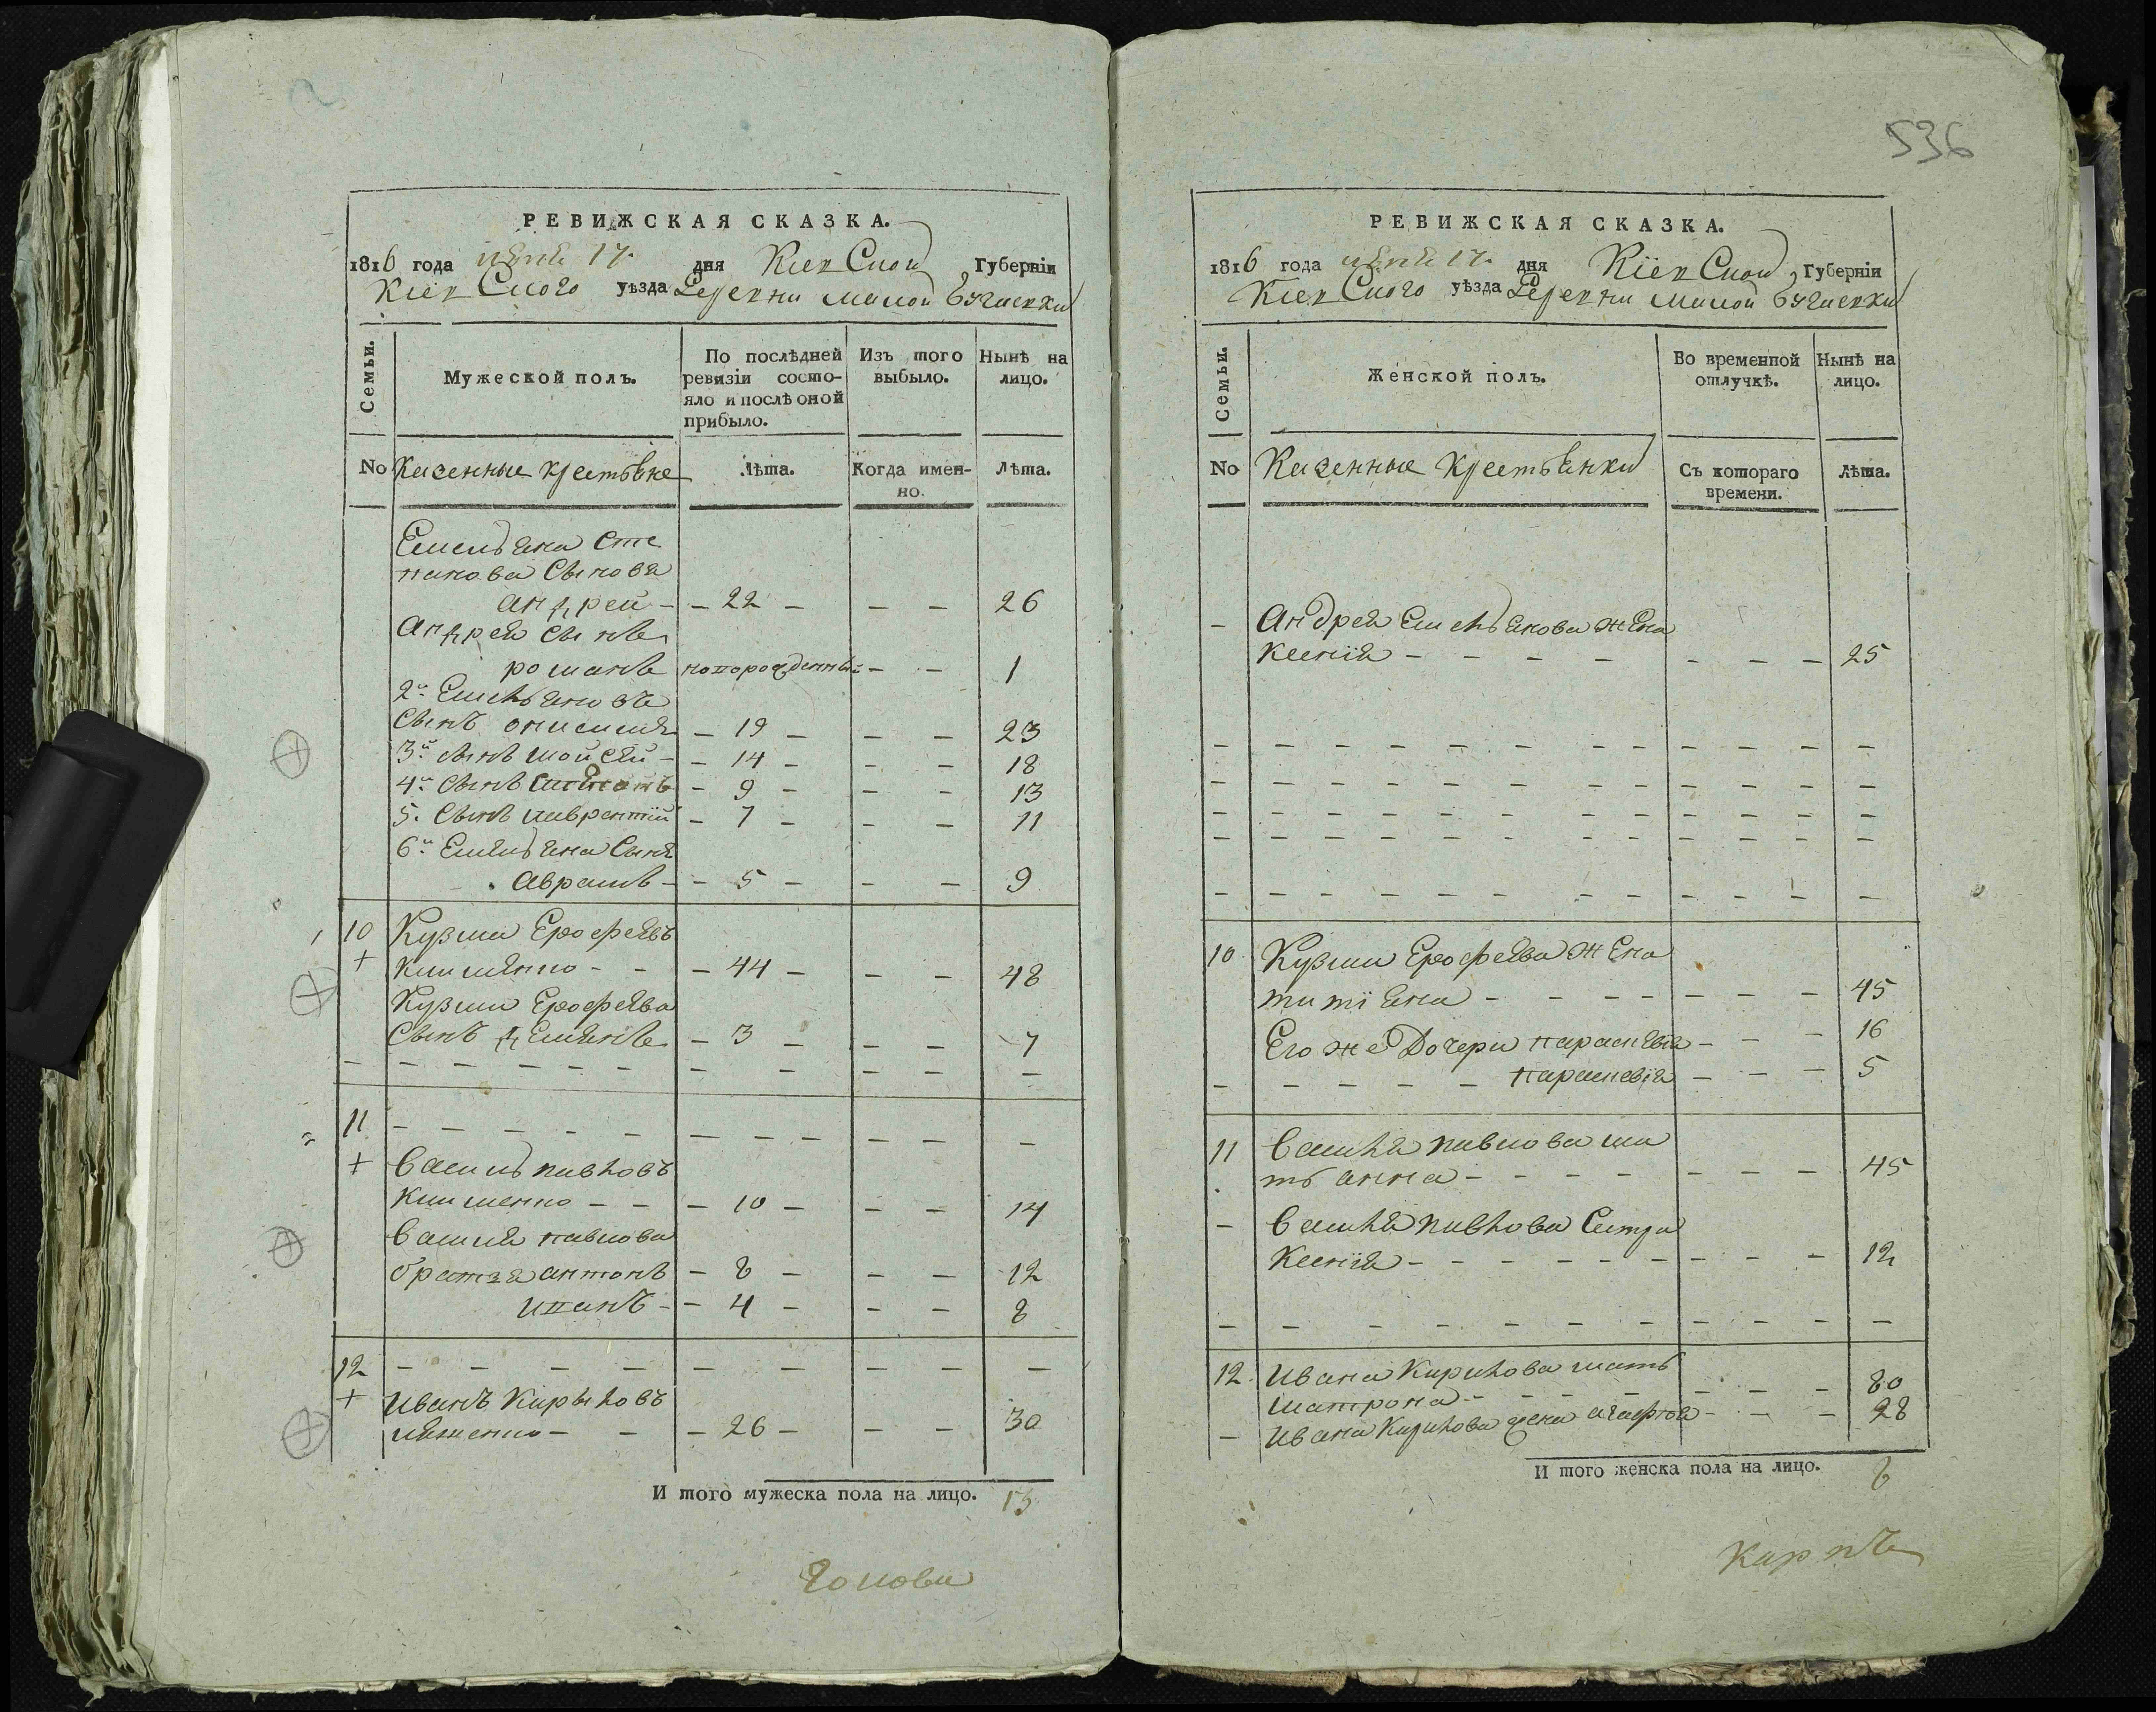 РЕВИЖСКАЯ СКАЗКА.
1816 года 17. дня Кіев Скои Губерніи
Кіев Ского уѣзда Деревни малой Бугаевки
Семьи.
Мужеской полъ.
По послѣдней ревизіи состо-
яло и послѣ оной
прибыло.
Изъ того
выбыло.
Нынѣ на
лицо.
No Казенные крестьяне Лѣта. Когда имен-
но. Лѣта.
Емельяна Сте
панова Сынова
андрей - - 22 - - - 26
Андрея сынъ
романъ новорожденный - - 1
2й Емельяновъ
Сынъ онисимъ - 19 - - - 23
3й сынъ мойсей - - 14 - - - 18
4й Сынъ - 9 - - - 13
5. Сынъ лаврентій - 7 - - - 11
6й Емельяна Сынъ
аврамъ - - 5 - - - 9
10 Кузма Ерофеевъ
+ клименко - - - 44 - - - 48
Кузмы Ерофеева
Сынъ демянъ - 3 - - - 7
- - - - - - - - - - -
11 - - - - - - - - - - -
+ Василь павловъ
клименко - - - 10 - - - 14
василя павлова
братья антонъ - 8 - - - 12
иванъ - - 4 - - - 8
12 - - - - - - - - -
+ Иванъ Кириловъ
ляшенко - - - 26 - - - 30
И того мужеска пола на лицо. 13
голова
536
РЕВИЖСКАЯ СКАЗКА.
1816 года 17. дня Кіев Скои Губерніи
Кіев Ского уѣзда Деревни малой Бугаевки
Семьи.
Женской полъ.
Во временной
отлучкѣ.
Нынѣ на
лицо.
No Казенные крестьянки Съ котораго
времени. Лѣта.
- Андрея Емельянова жена
Ксенія - - - - - - - 25
- - - - - - - - - - - - -
- - - - - - - - - - - - -
- - - - - - - - - - - - -
- - - - - - - - - - - - -
- - - - - - - - - - - - -
10 Кузмы Ерофеева жена
татіяна - - - - - - - 45
Его же Дочери параскевія - - - 16
- - - - - параскевія - - - 5
11 василя павлова ма
ть анна - - - - - - - - 45
- василя павлова Сестра
Ксенія - - - - - - - - - 12
- - - - - - - - - - -
12. Ивана Кирилова мать
матрона - - - - - - - 80
- Ивана Кирилова жена агафія - - - 28
И того женска пола на лицо. 8
карпъ